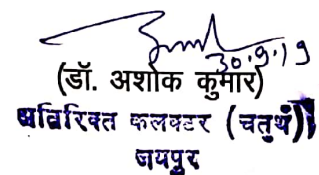 30.9.19
(डॉ. अशोक कुमार)
अतिरिक्त कलक्टर (चतुर्थ)
जयपुर